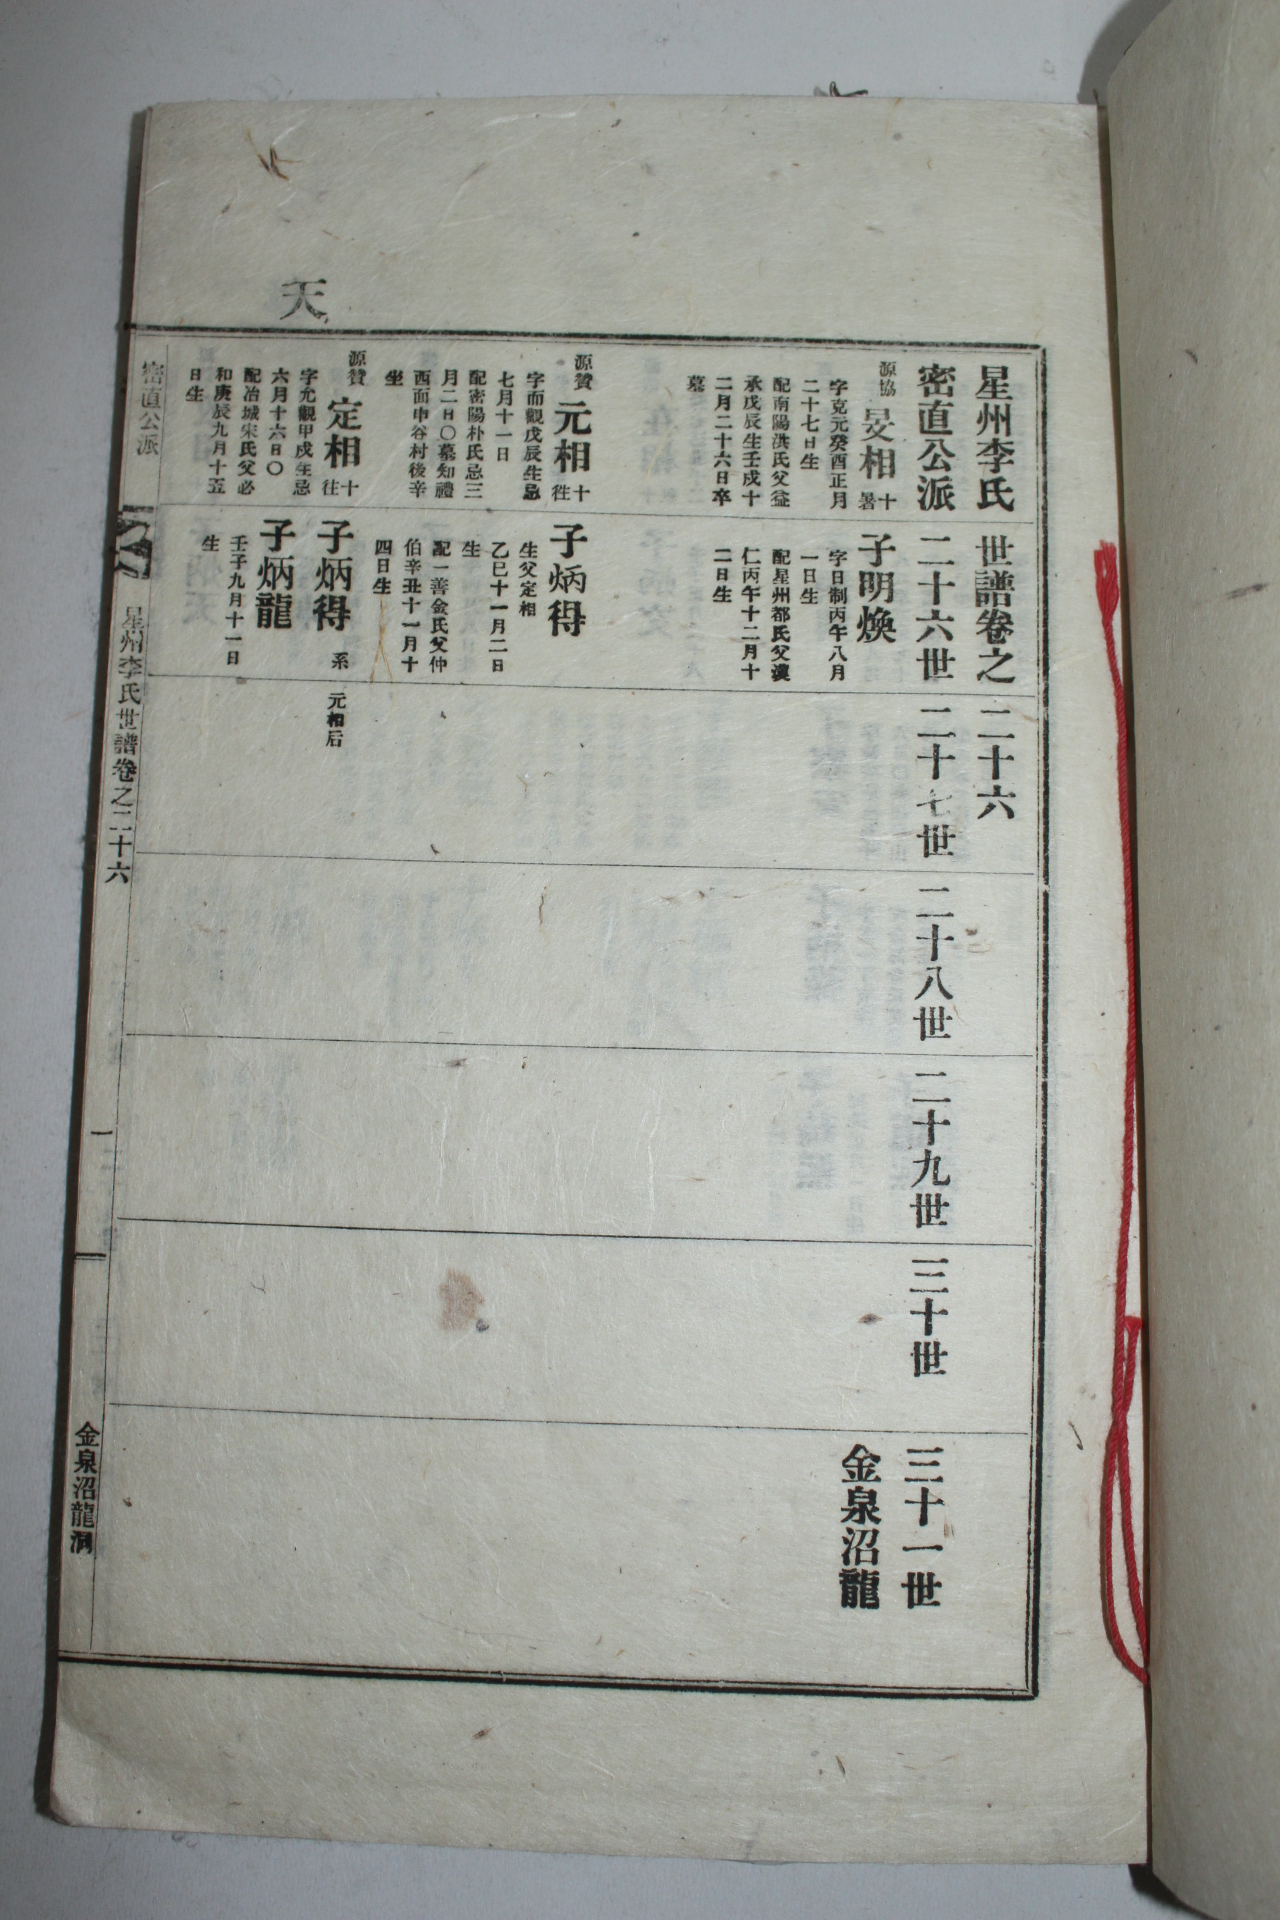 天
星州李氏世譜卷之二十六
密直公派
二十六世
二十七世
二十八世
二十九世
三十世
三十一世
金泉沼龍
源協
旻相
十
暑
字克元癸酉正月
二十七日生
配南陽洪氏父益
承戊辰生壬戌十
二月二十六日卒
墓
子明煥
字日制丙午八月
一日生
配星州都氏父漢
仁丙午十二月十
二日生
源贊
元相
十
徃
字而觀戊辰生忌
七月十一日
配密陽朴氏忌三
月二日〇墓知禮
西面申谷村後辛
坐
子炳得
生父定相
乙巳十一月二日
生
配一善金氏父仲
伯辛丑十一月十
四日生
源贊
定相
十
往
字允觀甲戌生忌
六月十六日〇
配冶城宋氏父必
和庚辰九月十五
日生
子炳得
系
元相后
子炳龍
壬子九月十一日
生
密直公派
星州李氏世譜卷之二十六
一
金泉沼龍洞